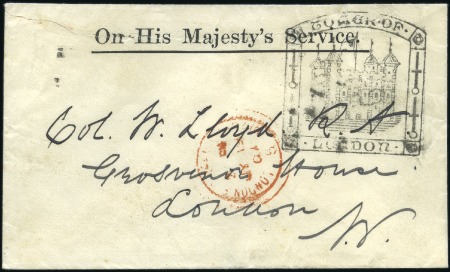 On His Majesty's Service.
TOWER OF
LONDON
Col. W. Lloyd R. A
Grosvenor House
London
W.